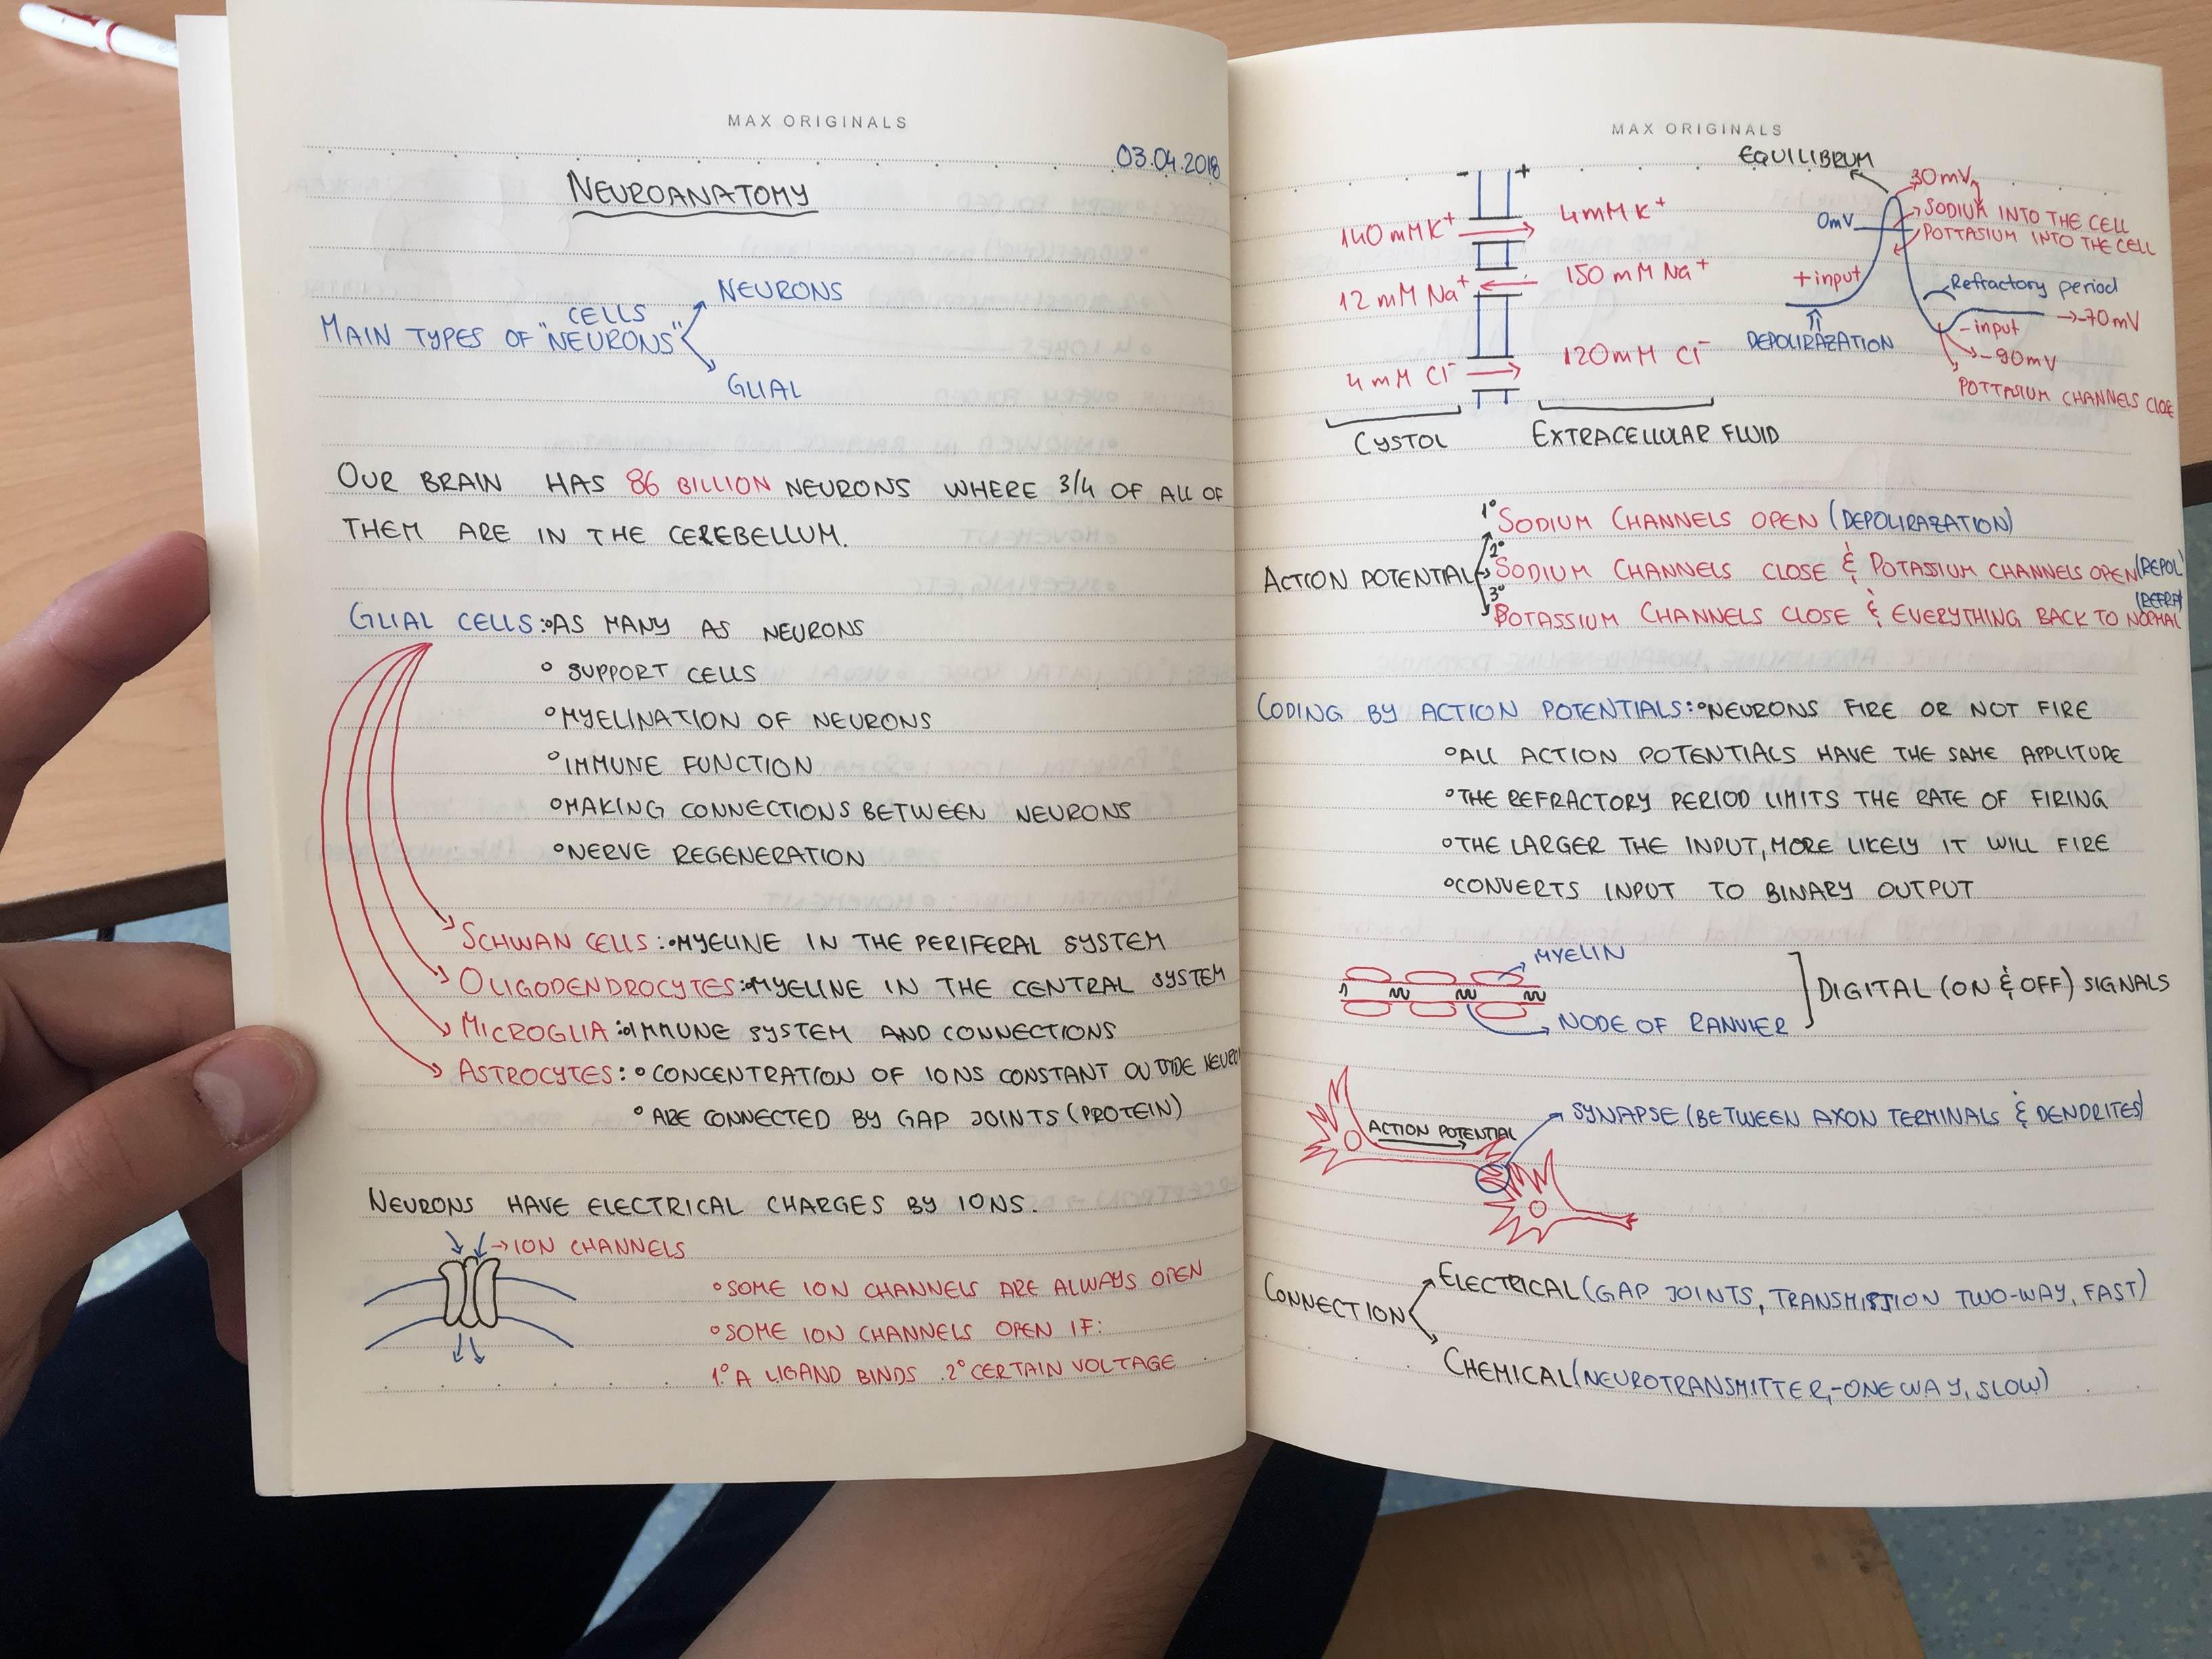 MAX ORIGINALS
03.04.2018
NEUROANATOMY
NEURONS
CELLS
MAIN TYPES OF "NEURONS"
GLIAL
OUR BRAIN HAS 86 BILLION NEURONS WHERE 3/4 OF ALL OF
THEM ARE IN THE CEREBELLUM.
GLIAL CELLS:°AS MANY AS NEURONS
° SUPPORT CELLS
°MYELINATION OF NEURONS
°IMMUNE FUNCTION
°MAKING CONNECTIONS BETWEEN NEURONS
°NERVE REGENERATION
SCHWAN CELLS:°MYELINE IN THE PERIFERAL SYSTEM
OLIGODENDROCYTES:°MYELINE IN THE CENTRAL SYSTEM
MICROGLIA:°IMMUNE SYSTEM AND CONNECTIONS
ASTROCYTES:°CONCENTRATION OF IONS CONSTANT
° ARE CONNECTED BY GAP JOINTS (PROTEIN)
NEURONS HAVE ELECTRICAL CHARGES BY IONS.
→ION CHANNELS
°SOME ION CHANNELS ARE ALWAYS OPEN
°SOME ION CHANNELS OPEN IF:
1° A LIGAND BINDS 2° CERTAIN VOLTAGE
MAX ORIGINALS
- +
140 mM K⁺ 4mM K⁺
12 mM Na⁺ 150 mM Na⁺
4 mM Cl⁻ 120mM Cl⁻
CYSTOL EXTRACELLULAR FLUID
EQUILIBRUM
30mV
0mV
SODIUM INTO THE CELL
POTTASIUM INTO THE CELL
+input
Refractory period
→-70mV
DEPOLIRAZATION
-input
-90mV
POTTASIUM CHANNELS CLOE
1° SODIUM CHANNELS OPEN (DEPOLIRAZATION)
ACTION POTENTIAL 2° SODIUM CHANNELS CLOSE & POTASSIUM CHANNELS OPEN (REPOL)
3° POTASSIUM CHANNELS CLOSE & EVERYTHING BACK TO NORMAL
CODING BY ACTION POTENTIALS:°NEURONS FIRE OR NOT FIRE
°ALL ACTION POTENTIALS HAVE THE SAME APPLITUDE
°THE REFRACTORY PERIOD LIMITS THE RATE OF FIRING
°THE LARGER THE INPUT, MORE LIKELY IT WILL FIRE
°CONVERTS INPUT TO BINARY OUTPUT
MYELIN
DIGITAL (ON & OFF) SIGNALS
NODE OF RANVIER
SYNAPSE (BETWEEN AXON TERMINALS & DENDRITES)
ACTION POTENTIAL
ELECTRICAL (GAP JOINTS, TRANSMISSION TWO-WAY, FAST)
CONNECTION
CHEMICAL (NEUROTRANSMITTER,-ONE WAY, SLOW)